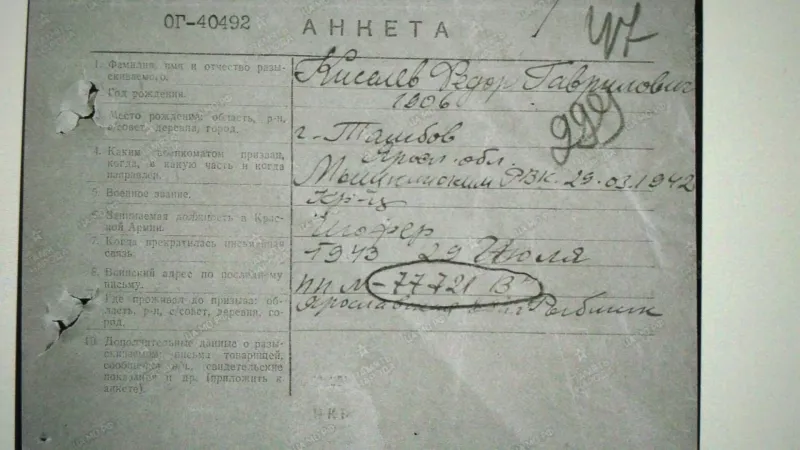 ОГ-40492 АНКЕТА 47
1. Фамилия, имя и отчество разы-
скиваемого.
Киселев Федор Гаврилович
Год рождения.
1906
999
Место рождения: область, р-н,
с/совет, деревня, город.
г. Тамбов
4. Каким военкоматом призван,
когда, в какую часть и когда
направлен.
Яросл. обл.
РВК. 29.03.1942
5. Военное звание.
Кр-ц
6. Занимаемая должность в Крас-
ной Армии.
Шофер
7. Когда прекратилась письменная
связь.
1943 29 Июля
8. Воинский адрес по последнему
письму.
пп № -77721 "В"
Где проживал до призыва: об-
ласть, р-н, с/совет, деревня, го-
род.
Ярославская г. Рыбинск
10. Дополнительные данные о разы-
скиваемом: письма товарищей,
сообщения в/ч, свидетельские
показания и др. (приложить к
анкете).